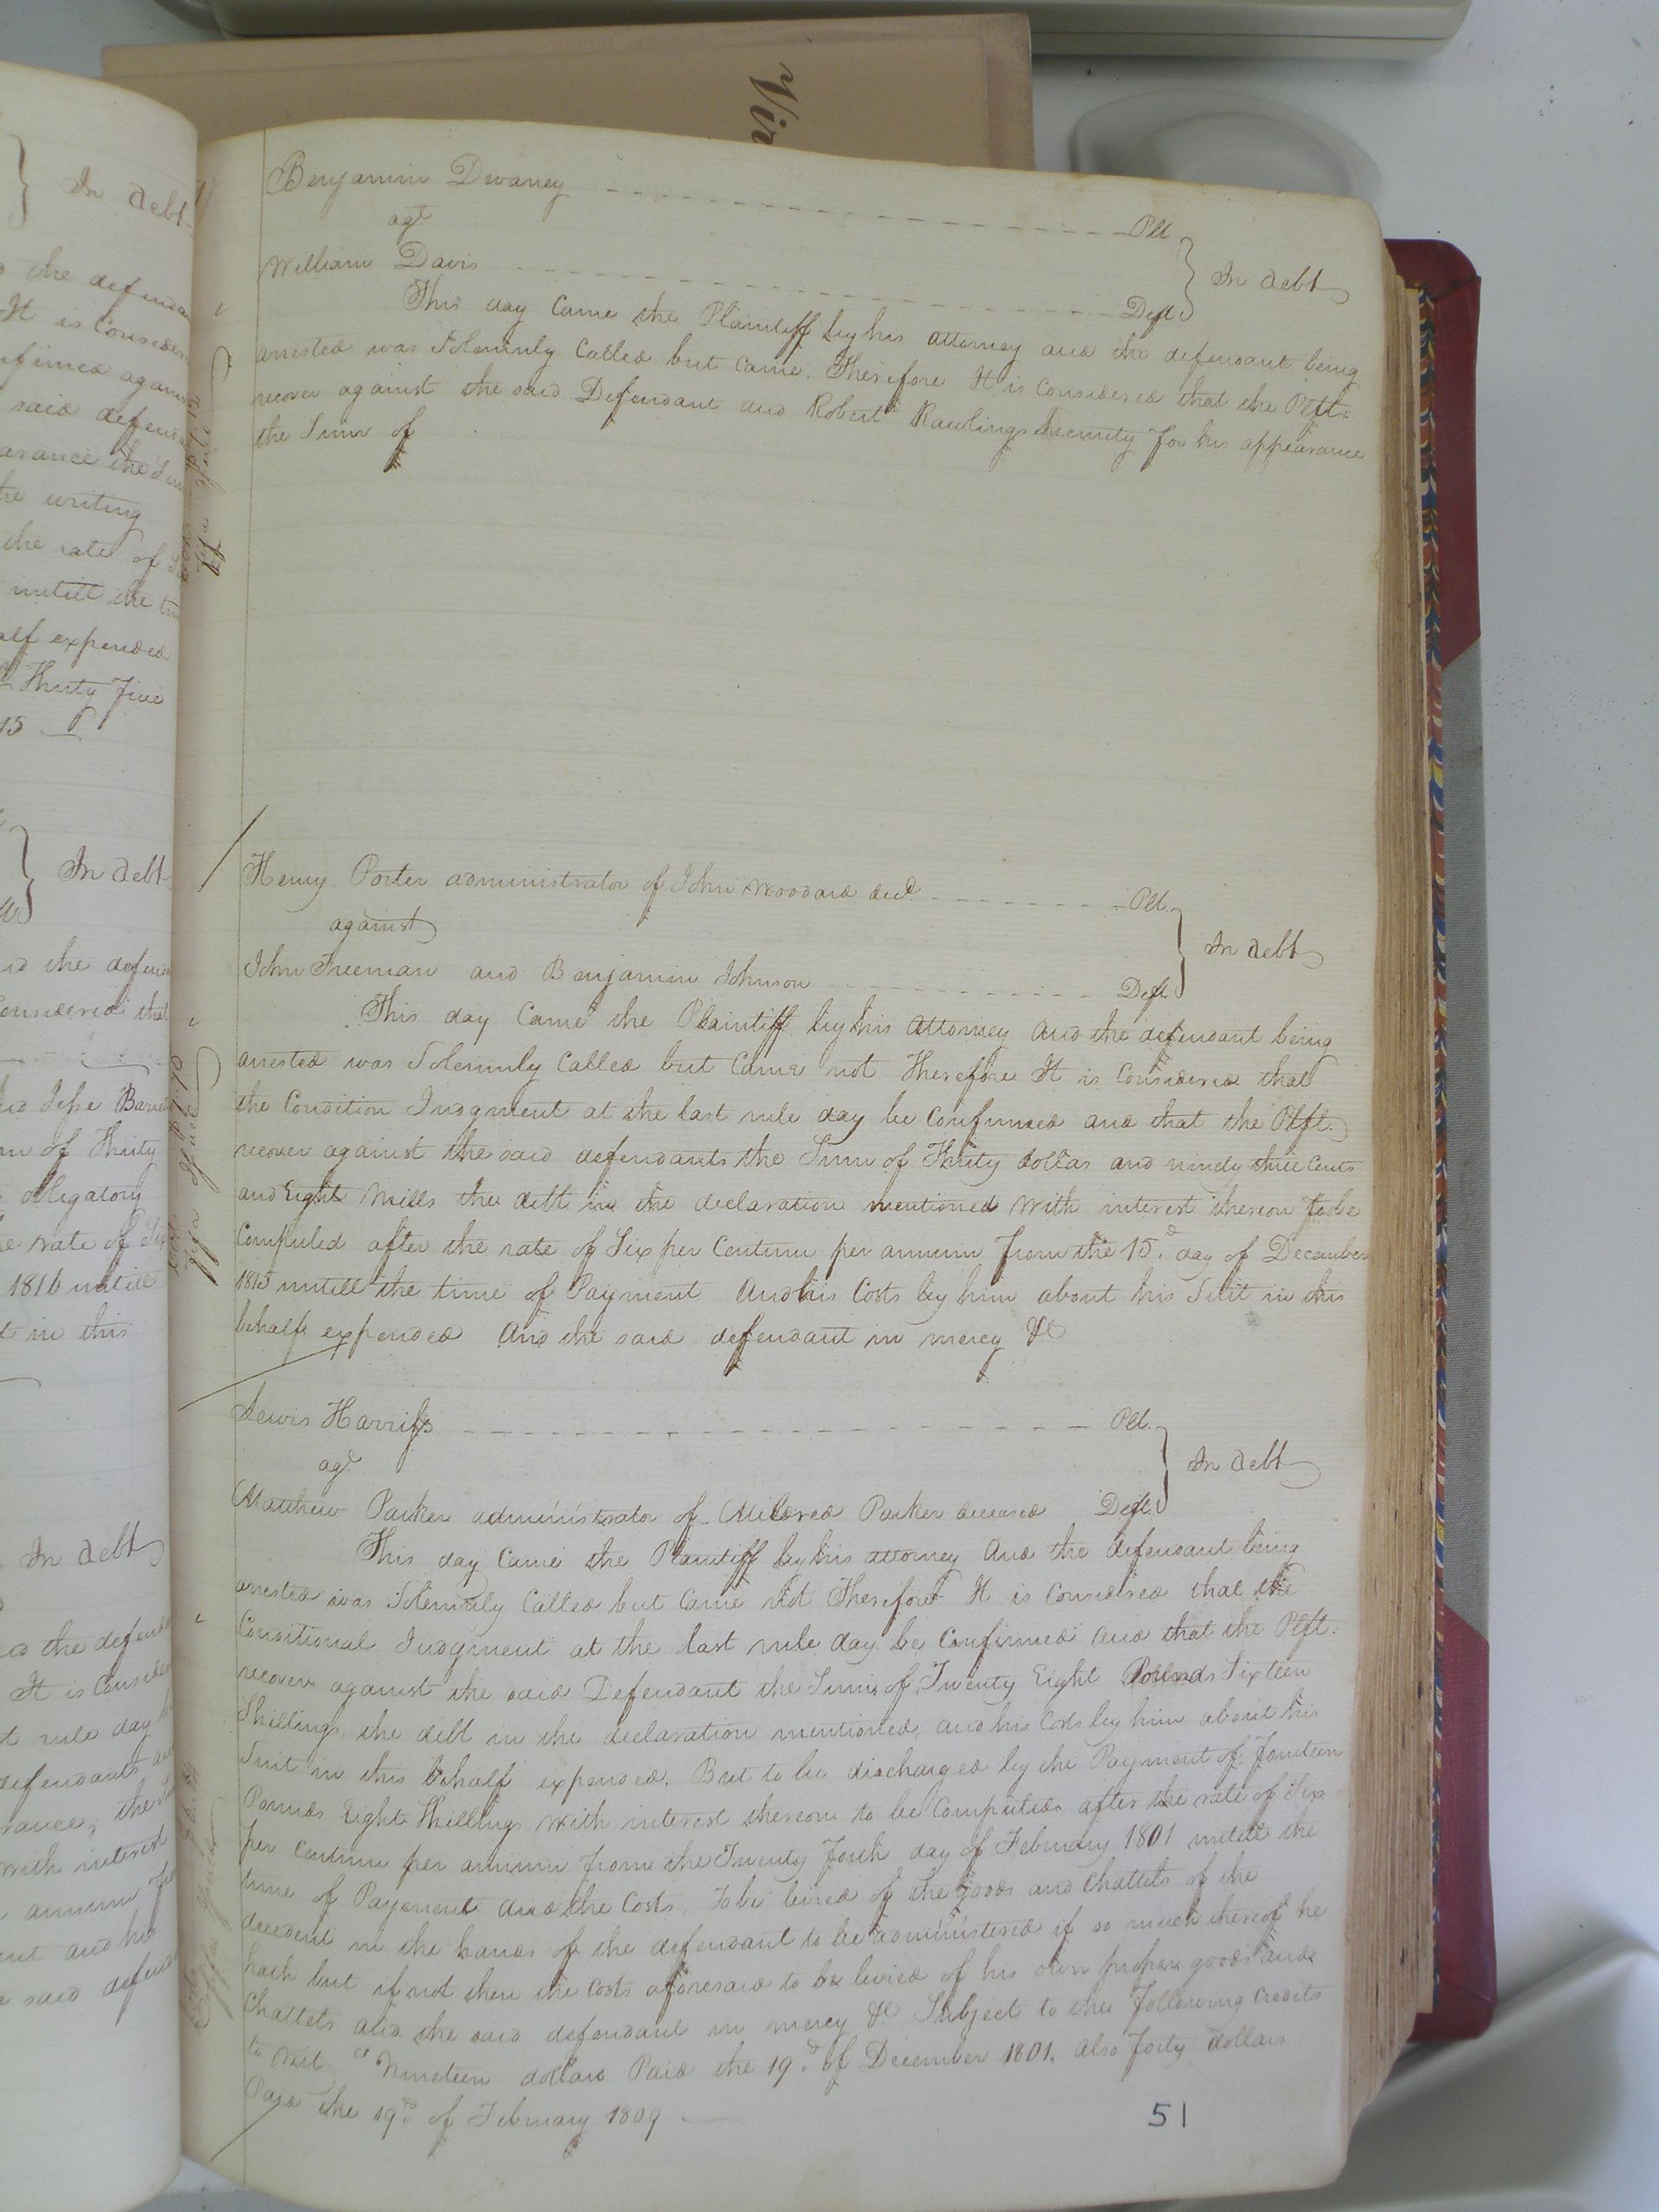 Vir
In debt
the defenda
It is Consider
nfirmed against
said defen
arance the Su
he writing
the rate of
untill the ti
alf expended
Thirty Five
15
In debt
nd the defen
onsidered that
nd Jesse Bar
m of Thirty
obligatory
e rate of Six
1816 untill
t in this
In debt
nd the defend
It is Consider
t rule day
defendants
rance, the
with interest
annum
ent and his
said defen
Benjamin Dwaney Plt
agt
William Davis Deft
In debt
This day Came the Plaintiff by his attorney and the defendant being
arrested was Solemnly Called but Came. Therefore It is Considered that the Plft.
recover against the said Defendant and Robert Rawlings Security for his appearance
the Sum of
Henry Porter administrator of John Woodard decd. Plt.
against
John Freeman and Benjamin Johnson Deft
In debt
This day Came the Plaintiff by his attorney And the defendant being
arrested was Solemnly Called but Came not Therefore It is Considered that
the Condition Judgment at the last rule day be Confirmed and that the Plft.
recover against the said defendants the Sum of Thirty dollas and ninety three Cents
and Eight Mills the debt in the declaration mentioned with interest thereon to be
Computed after the rate of Six per Centum per annum from the 15.d day of December
1815 untill the time of Payment And his Costs by him about his Suit in this
behalf expended And the said defendant in mercy &c
Lewis Harriss Plt.
agt
Matthew Parker administrator of Mildred Parker deceased Deft
In debt
This day Came the Plaintiff by his attorney And the defendant being
arrested was Solemnly Called but Came Not Therefore It is Considered that the
Conditional Judgment at the last rule day be Confirmed and that the Plft.
recover against the said Defendant the Sum of Twenty Eight Pounds Sixteen
Shillings, the debt in the declaration mentioned, and his Costs by him about his
Suit in this behalf expended. But to be discharged by the Payment of Fourteen
Pounds Eight Shillings with interest thereon to be Computed after the rate of Six
per Centum per annum from the Twenty Forth day of February 1801 untill the
time of Payment And the Costs, To be levied of the goods and Chattets of the
decedent in the hands of the defendant to be administered if so much thereof he
hath but if not then the Costs aforesaid to be levied of his own proper goods and
Chattets and the said defendant in mercy &c Subject to the following Credits
to wit Nineteen dollars Paid the 19.d of December 1801, also Forty dollars
Paid the 19.th of February 1809
51